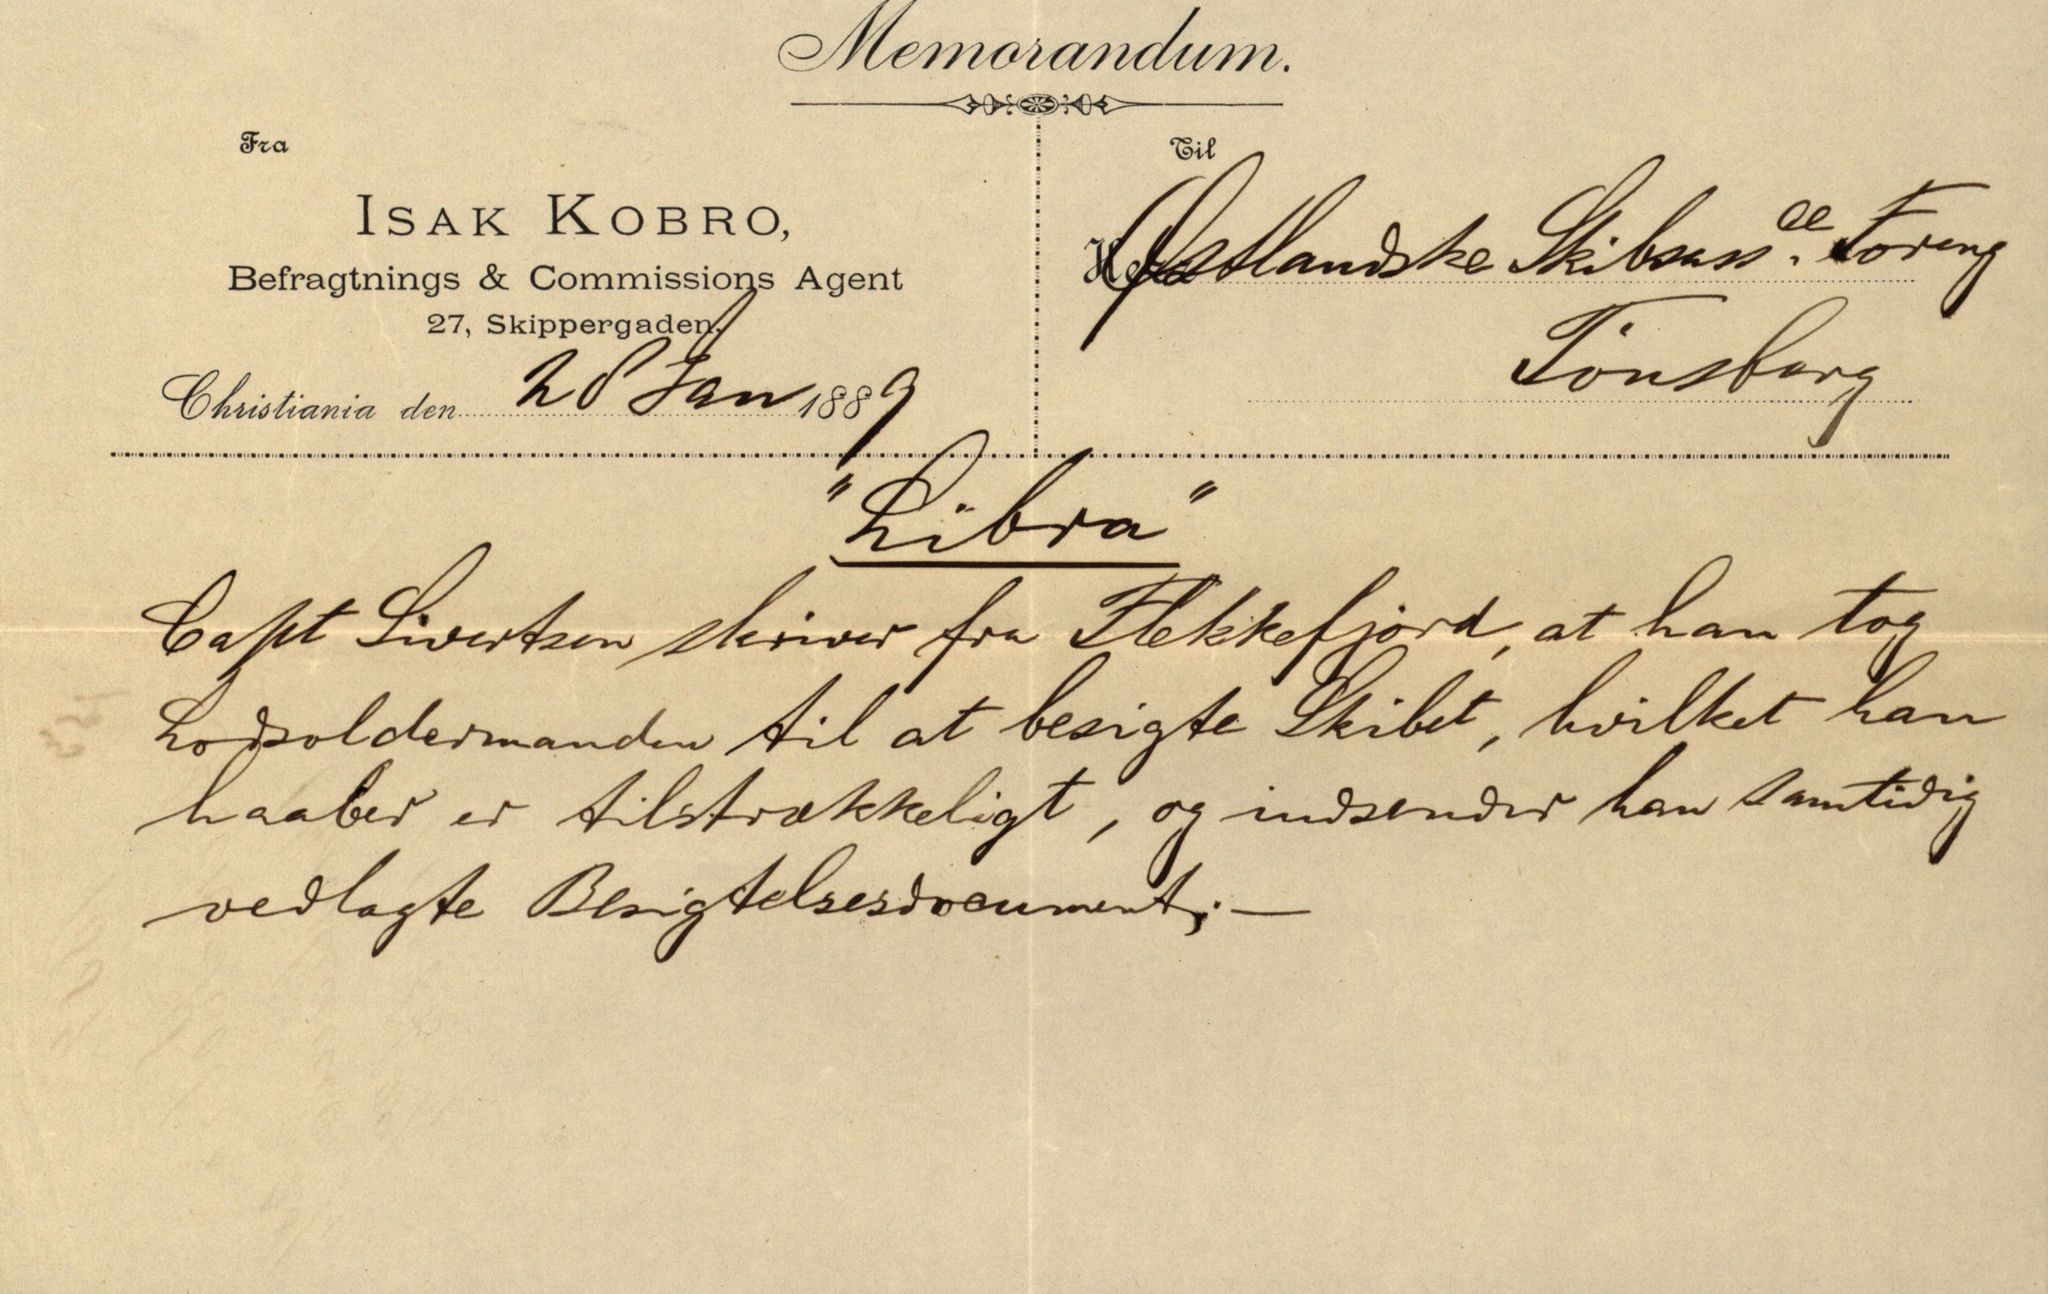 Memorandum.
Fra
ISAK KOBRO,
Befragtnings & Commissions Agent
27, Skippergaden.
Christiania den 28 Jan 1889
Til
Østlandske Skibsass.ce Foreng
Tönsberg
"Libra"
Capt Sivertsen skriver fra Flekkefjord, at han tog
Lodsoldermanden til at besigte Skibet, hvilket han
haaber er tilstrækkeligt, og indsender han samtidig
vedlagte Besigtelsesdocument; —